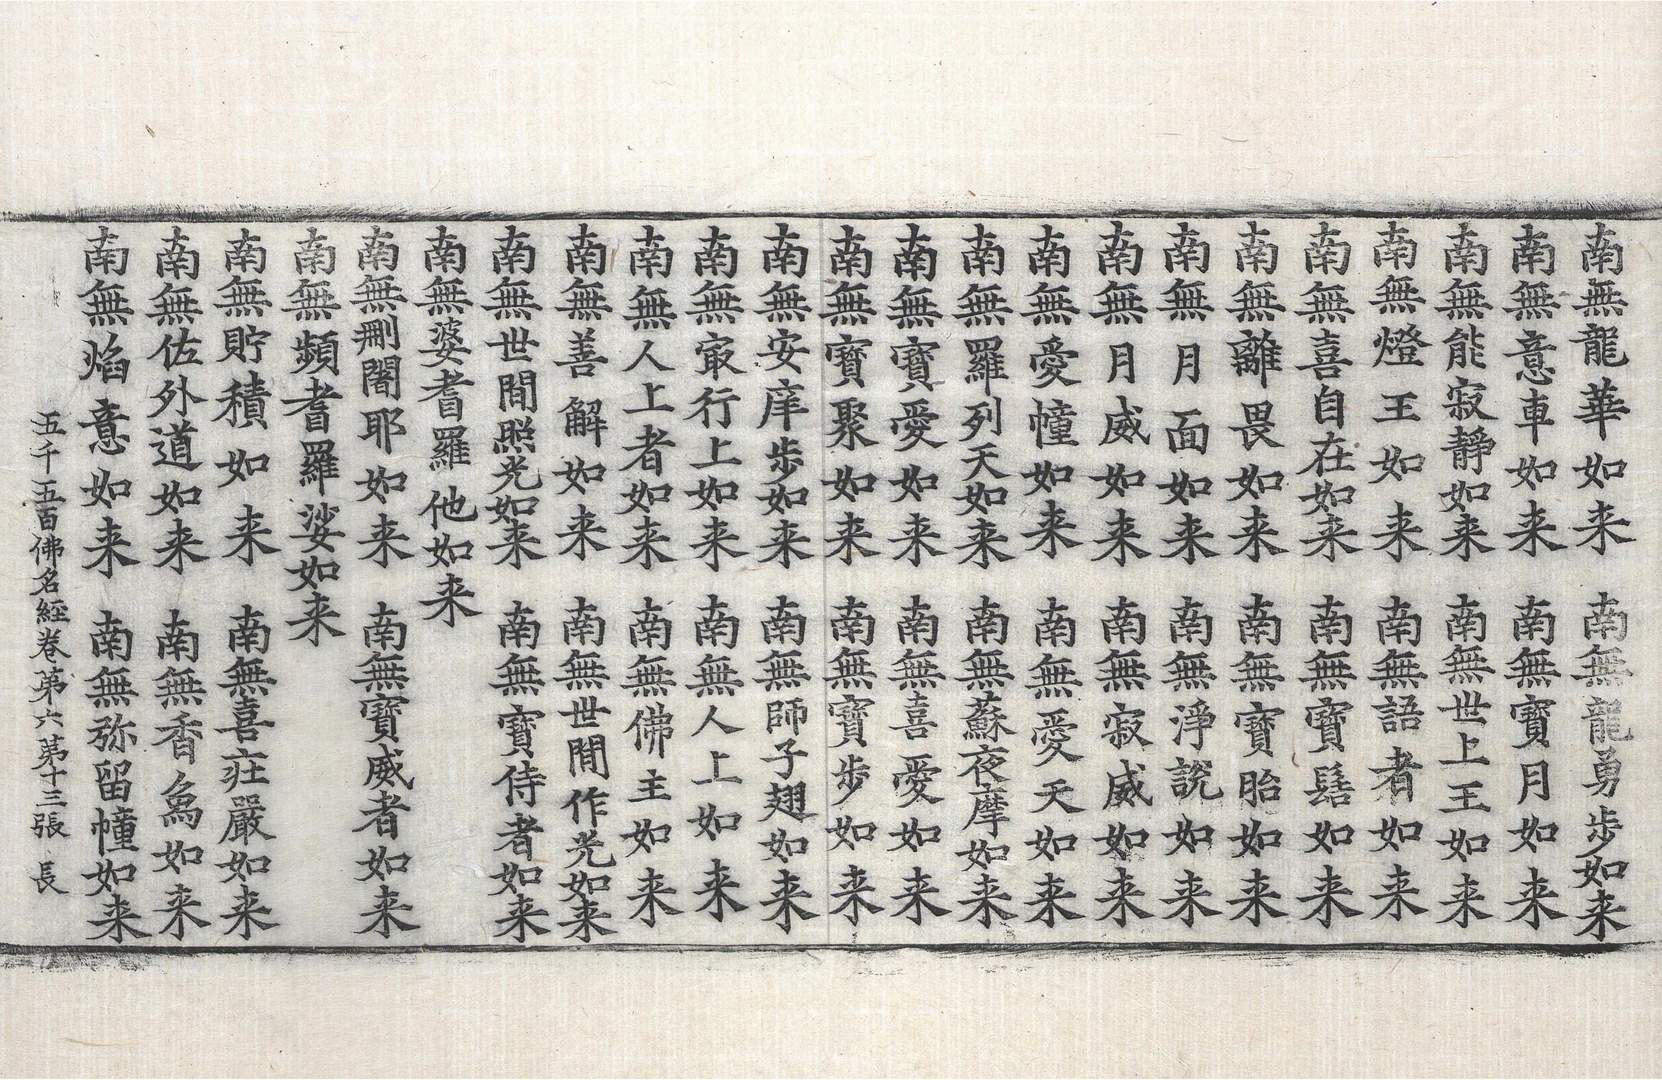 南無龍華如来 南無龍勇步如来
南無意車如来 南無寶月如来
南無能寂靜如来 南無世上王如来
南無燈王如来 南無語者如来
南無喜自在如来 南無寶髻如来
南無離畏如来 南無寶胎如来
南無月面如来 南無淨說如来
南無月威如来 南無寂威如来
南無愛幢如来 南無愛天如来
南無羅列天如来 南無蘇夜摩如来
南無寶愛如来 南無喜愛如来
南無寶聚如来 南無寶步如来
南無安庠步如来 南無師子翅如来
南無㝡行上如来 南無人上如来
南無人上者如来 南無佛主如来
南無善解如来 南無世間作光如来
南無世間照光如来 南無寶侍者如来
南無婆耆羅他如来
南無刪闍耶如来 南無寶威者如来
南無頻耆羅娑如来
南無貯積如来 南無喜莊嚴如来
南無佐外道如来 南無香爲如来
南無焰意如来 南無弥留幢如来
五千五百佛名經卷第六第十三張 長